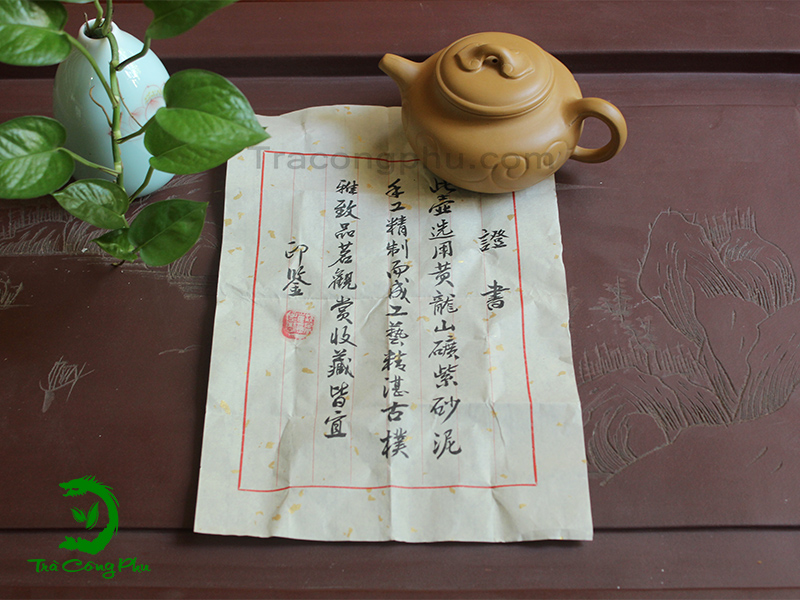 證書
此壺选用黄龍山礦紫砂泥
手工精制而成工藝精湛古樸
雅致品茗觀赏收藏皆宜
印鉴
Tracongphu.com
Trà Công Phu